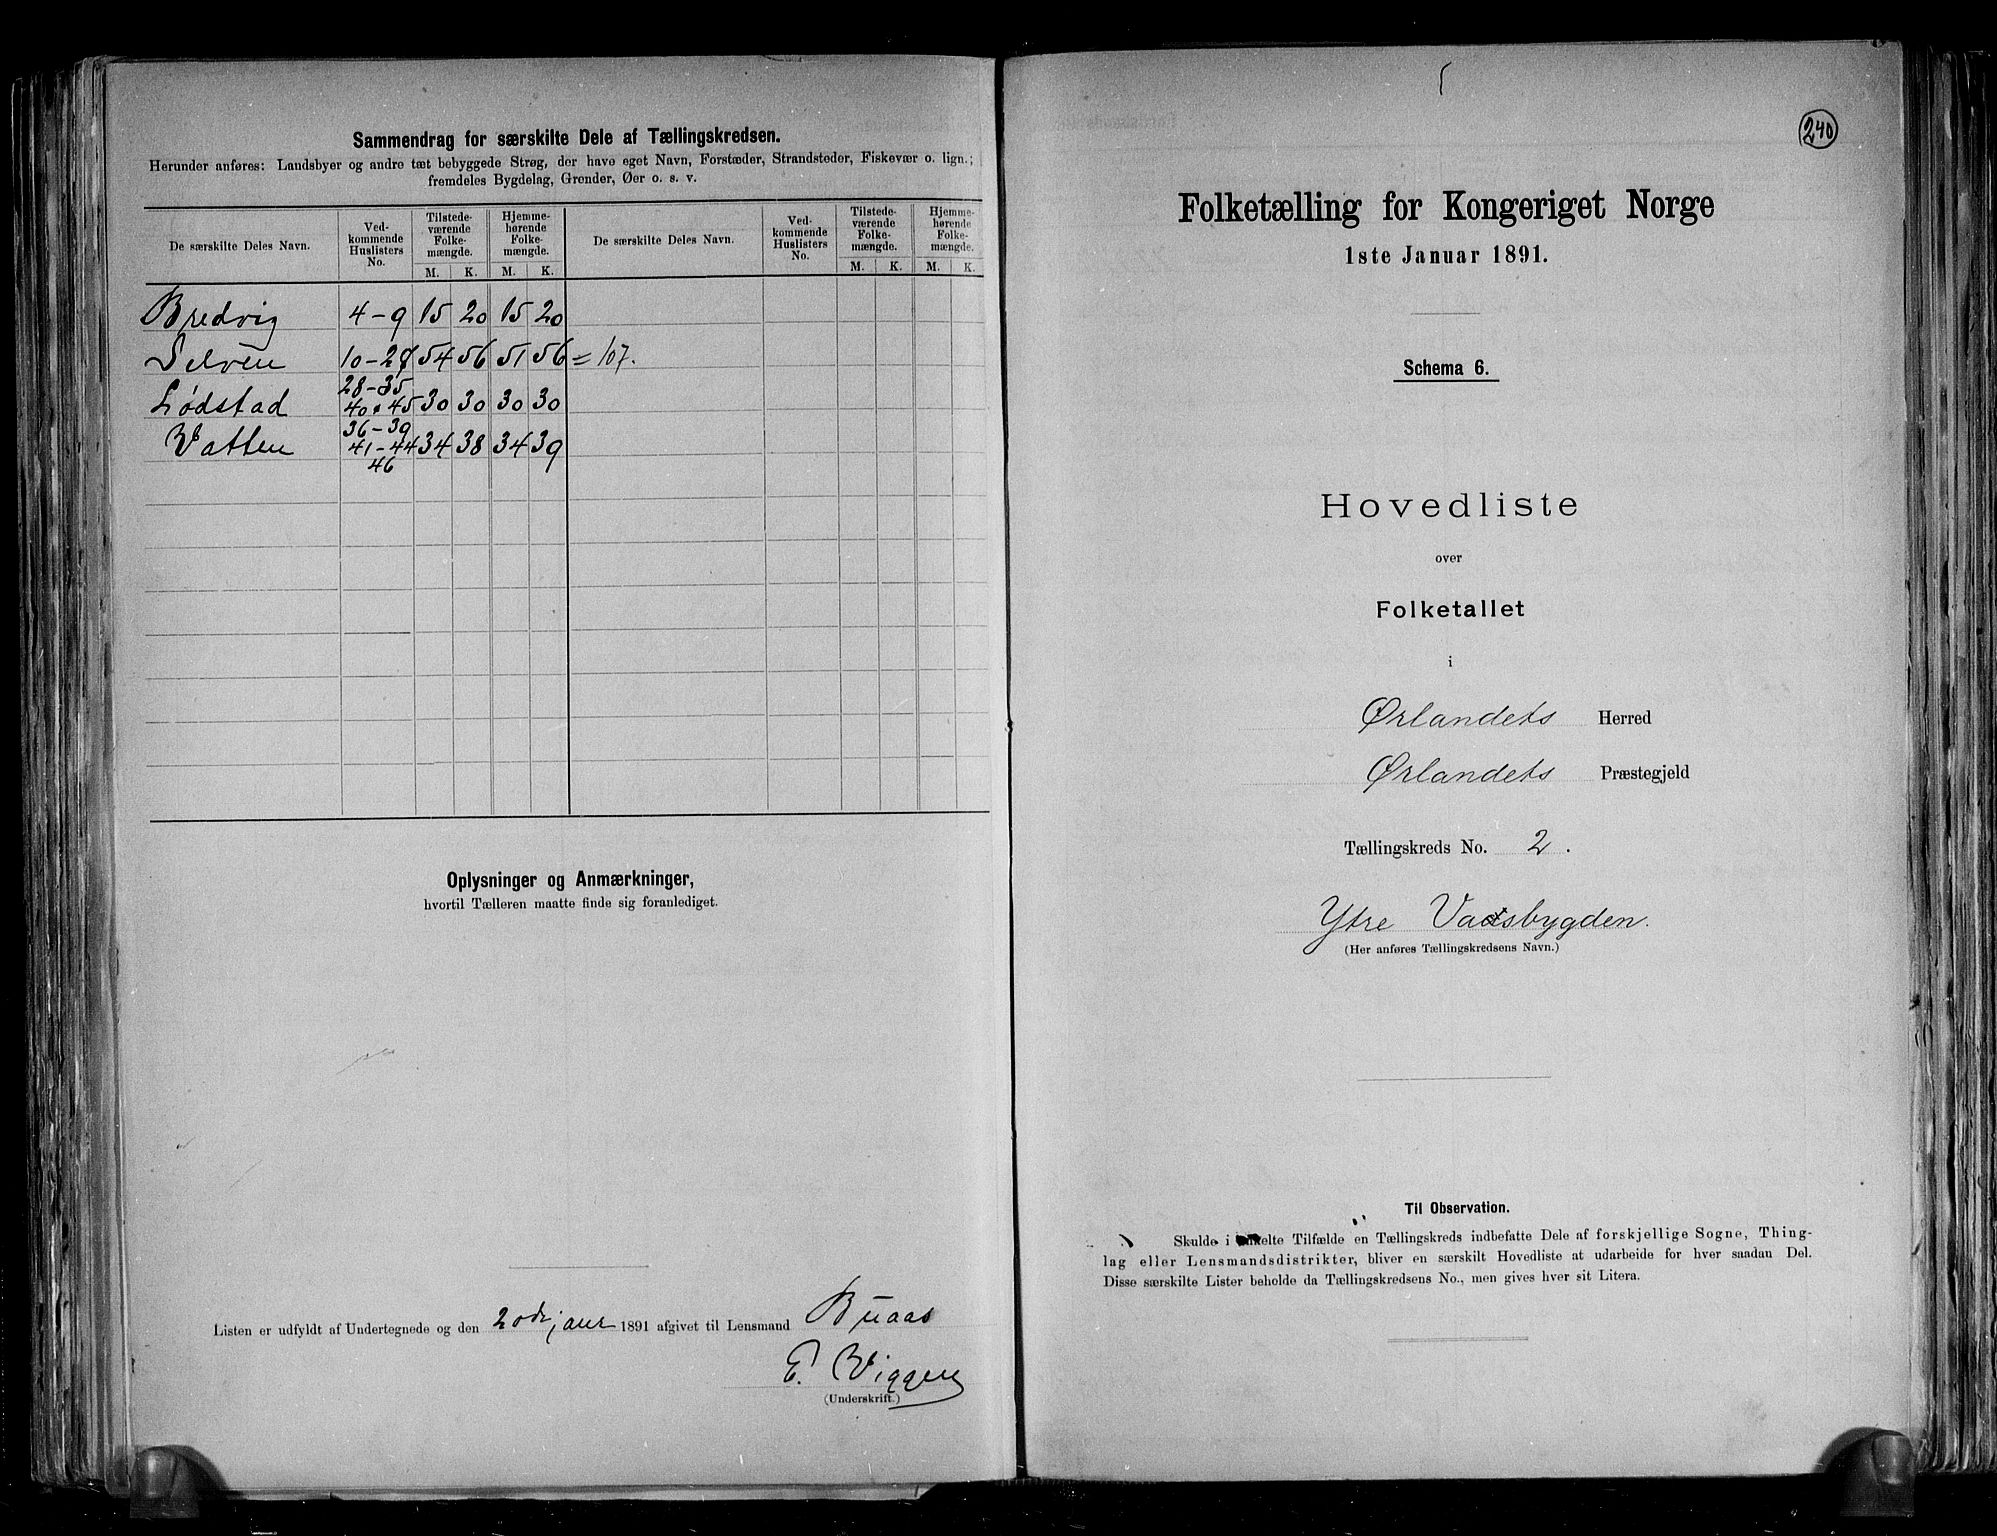 Sammendrag for særskilte Dele af Tællingskredsen.
Herunder anføres: Landsbyer og andre tæt bebyggede Strøg, der have eget Navn, Forstæder, Strandsteder, Fiskevær o. lign.;
fremdeles Bygdelag, Grender, Øer o. s. v.
De særskilte Deles Navn. Ved-kommende Huslisters No. Tilstede-værende Folke-mængde. Hjemme-hørende Folke-mængde. De særskilte Deles Navn. Ved-kommende Huslisters No. Tilstede-værende Folke-mængde. Hjemme-hørende Folke-mængde.
M. K. M. K. M. K. M. K.
Bredvig 4-9 15 20 15 20
Selven 10-27 54 56 51 56 = 107.
28-35
Lødstad 40 • 45 30 30 30 30
36-39
Vatten 41-44 34 38 34 39
46
Oplysninger og Anmærkninger,
hvortil Tælleren maatte finde sig foranlediget.
Listen er udfyldt af Undertegnede og den 20de janr 1891 afgivet til Lensmand Buaas
E. Viggen
(Underskrift.)
240
Folketælling for Kongeriget Norge
1ste Januar 1891.
Schema 6.
Hovedliste
over
Folketallet
i
Ørlandets Herred
Ørlandets Præstegjeld
Tællingskreds No. 2.
Ytre Vadsbygden.
(Her anføres Tællingskredsens Navn.)
Til Observation.
Skulde i enkelte Tilfælde en Tællingskreds indbefatte Dele af forskjellige Sogne, Thing-
lag eller Lensmandsdistrikter, bliver en særskilt Hovedliste at udarbeide for hver saadan Del.
Disse særskilte Lister beholde da Tællingskredsens No., men gives hver sit Litera.